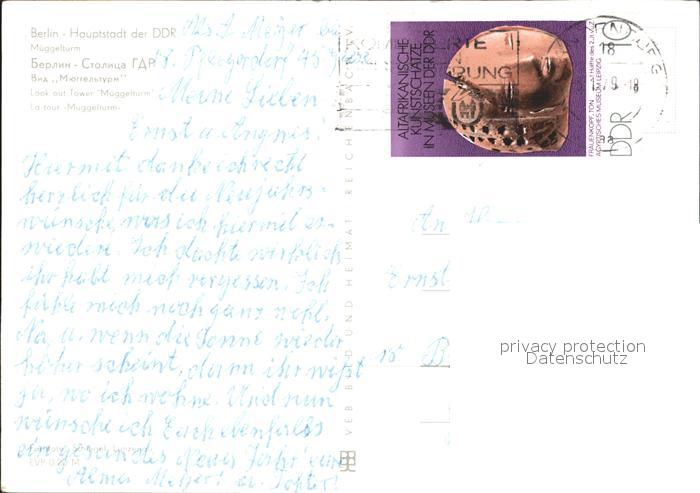 Berlin - Hauptstadt der DDR
Müggelturm
Берлин - Столица ГДР
Вид ,,Мюггельтурм"
Look out Tower "Müggelturm"
La tour "Müggelturm"
Meine Lieben
Ernst u.
Hiermit danke ich recht
herzlich für die Neujahrs-
wünsche, was ich hiermit er-
wiedere. Ich dachte wirklich
ihr habt mich vergessen. Ich
fühle mich noch ganz wohl.
Na, u. wenn die Sonne wieder
höher scheint, dann ihr wißt
ja, wo ich wohne. Und nun
wünsche ich Euch ebenfalls
ein gesundes Neues Jahr! eure
Alma Meyer! u. Tochter!
EVP 0,20 M
VEB BILD UND HEIMAT REICHENBACH I V
ALTAFRIKANISCHE
KUNSTSCHÄTZE
IN MUSEEN DER DDR
FRAUENKOPF, TON
ÄGYPTISCHES MUSEUM LEIPZIG
DDR
18
An
Ernst
15
B
privacy protection
Datenschutz